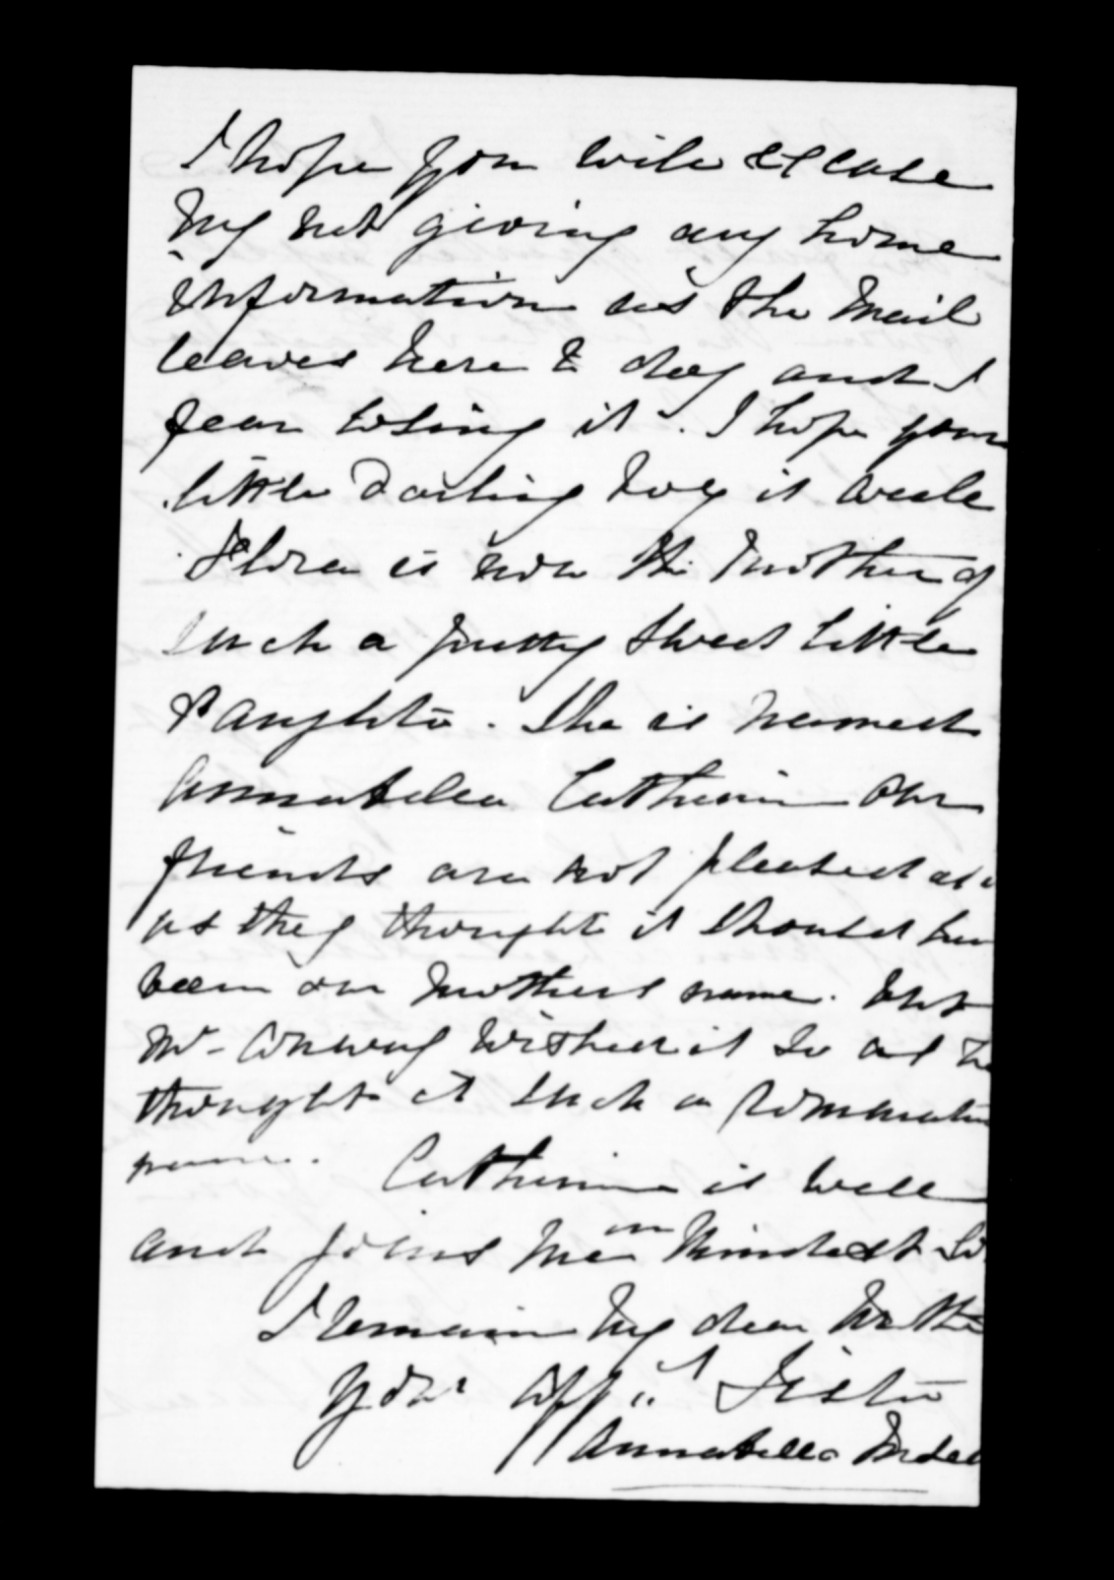 I hope you will excuse
my not giving any home
information as the mail
leaves here to day and I
fear losing it. I hope your
little Darling boy is well
Flora is now the mother of
such a pretty sweet little
Daughter. She is named
Annabella Catherine our
friends are not pleased at
as they thought it should have
been our mothers name. but
Mr. Conway wished it so as he
thought it such a romantic
name. Catherine is well
and joins me in kindest
I remain my dear brother
your aff. Sister
Annabella